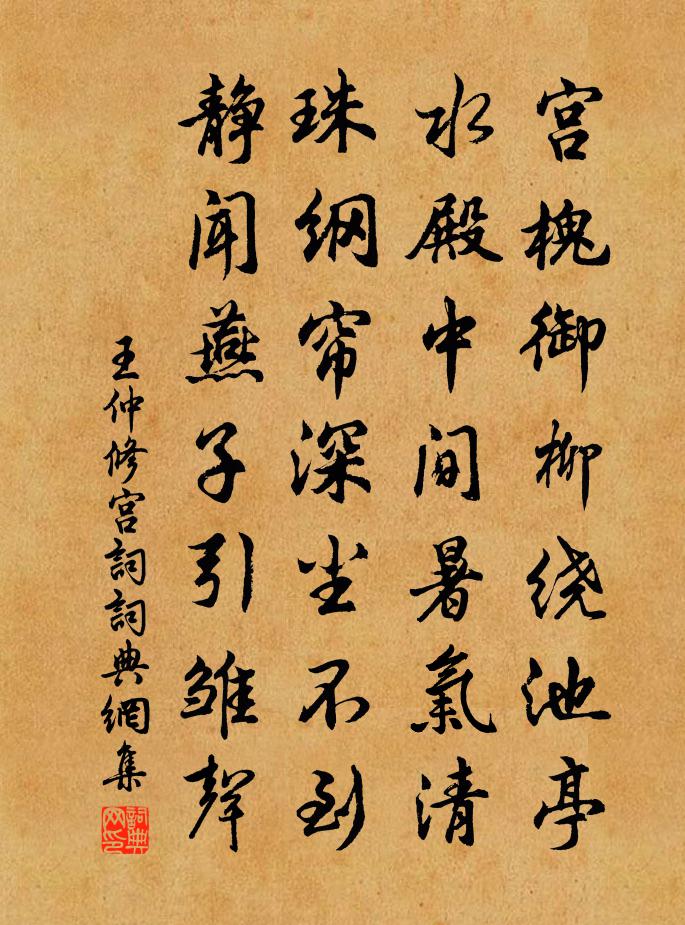 宫槐御柳绕池亭
水殿中间暑氣清
珠纲帘深尘不到
静闻燕子引雏聲
王仲修宫詞詞典網集
詞典网印